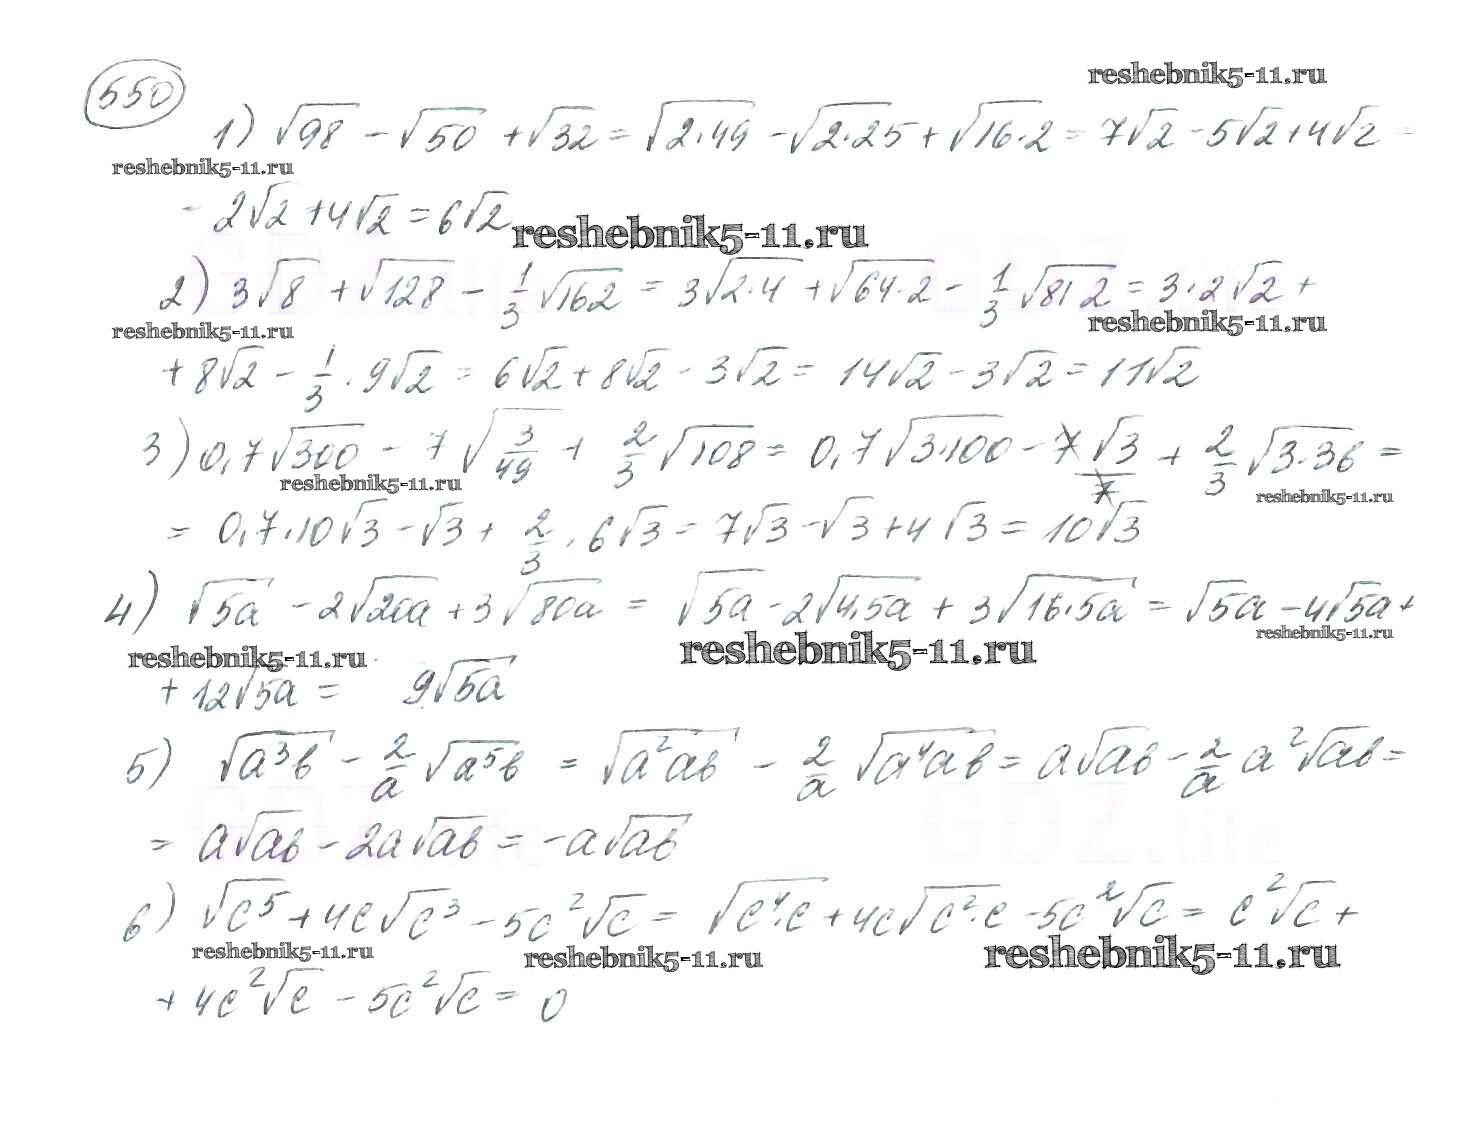 550
reshebnik5-11.ru
1) √98 - √50 + √32 = √2·49 - √2·25 + √16·2 = 7√2 - 5√2 + 4√2 =
reshebnik5-11.ru
- 2√2 + 4√2 = 6√2
reshebnik5-11.ru
2) 3√8 + √128 - 1/3 √162 = 3√2·4 + √64·2 - 1/3 √81·2 = 3·2√2 +
reshebnik5-11.ru
reshebnik5-11.ru
+ 8√2 - 1/3 · 9√2 = 6√2 + 8√2 - 3√2 = 14√2 - 3√2 = 11√2
3) 0,7√300 - 7√3/49 + 2/3 √108 = 0,7√3·100 - 7√3/7 + 2/3 √3·36 =
reshebnik5-11.ru
reshebnik5-11.ru
= 0,7·10√3 - √3 + 2/3 · 6√3 = 7√3 - √3 + 4√3 = 10√3
4) √5a - 2√20a + 3√80a = √5a - 2√4·5a + 3√16·5a = √5a - 4√5a +
reshebnik5-11.ru
reshebnik5-11.ru
reshebnik5-11.ru
+ 12√5a = 9√5a
5) √a³b - 2/a √a⁵b = √a²ab - 2/a √a⁴ab = a√ab - 2/a a²√ab =
= a√ab - 2a√ab = -a√ab
6) √c⁵ + 4c√c³ - 5c²√c = √c⁴·c + 4c√c²·c - 5c²√c = c²√c +
reshebnik5-11.ru
reshebnik5-11.ru
reshebnik5-11.ru
+ 4c²√c - 5c²√c = 0